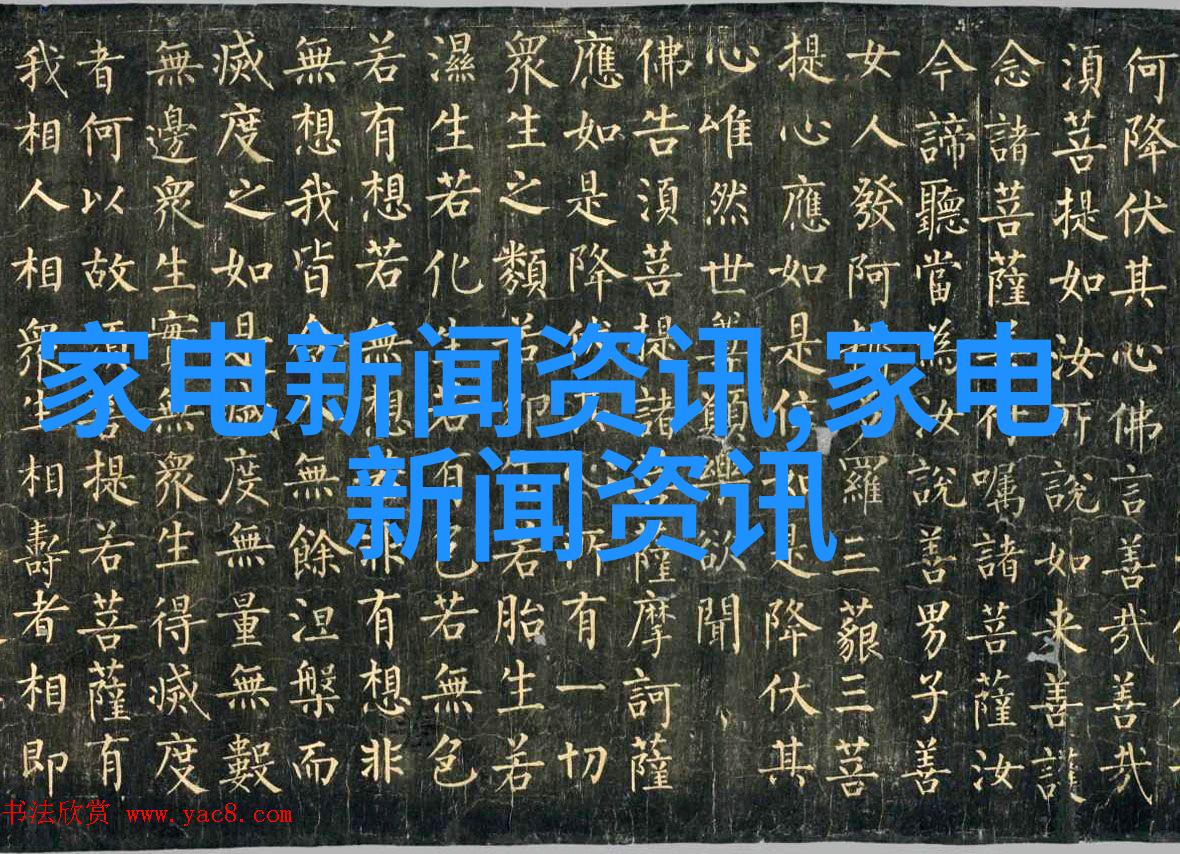 何降伏其心佛言善哉善哉
須菩提如汝所說如来善護
念諸菩薩善付嘱諸菩薩汝
今諦聽當為汝說善男子善
女人發阿耨多羅三藐三菩
提心應如是住如是降伏其
心唯然世尊願樂欲聞
佛告須菩提諸菩薩摩訶薩
應如是降伏其心所有一切
衆生之類若卵生若胎生若
濕生若化生若有色若無色
若有想若無想若非有想非
無想我皆令入無餘涅槃而
滅度之如是滅度無量無數
無邊衆生實無衆生得滅度
者何以故須菩提若菩薩有
我相人相衆生相壽者相即
家电新闻资讯,家电
新闻资讯
书法欣赏 www.yac8.com